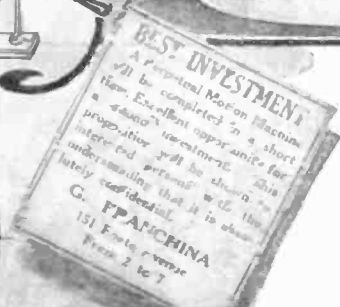 BEST INVESTMENT
A Perpetual Motion Machine
will be completed in a short
time. Excellent opportunity for
a investment. This
proposition will be shown to
interested persons with the
understanding that it is abso-
lutely confidential.
G. FRANCHINA
151 Foote
From 2 to 7